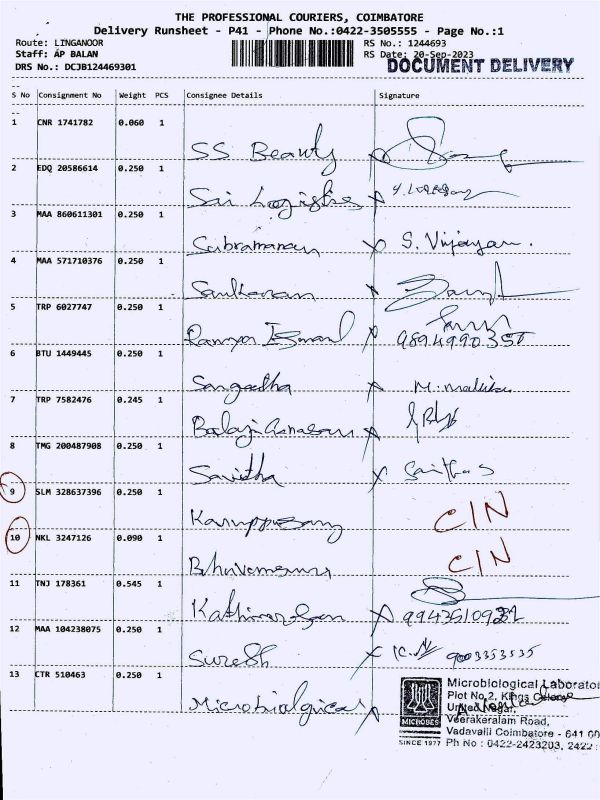 THE PROFESSIONAL COURIERS, COIMBATORE
Delivery Runsheet - P41 - Phone No.:0422-3505555 - Page No.:1
Route: LINGANOOR
Staff: AP BALAN
DRS No.: DCJB124469301
RS No.: 1244693
RS Date: 20-Sep-2023
DOCUMENT DELIVERY
S No Consignment No Weight PCS Consignee Details Signature
1 CNR 1741782 0.060 1
SS Beauty
2 EDQ 20586614 0.250 1
Sai Logistics
3 MAA 860611301 0.250 1
Subramanan S. Vijayan.
4 MAA 571710376 0.250 1
Sankaran
5 TRP 6027747 0.250 1
Ramya 9894990350
6 BTU 1449445 0.250 1
Sangeetha M.
7 TRP 7582476 0.245 1
Balaji
8 TMG 200487908 0.250 1
Savitha
9 SLM 328637396 0.250 1
Karuppusamy C/N
10 NKL 3247126 0.090 1
C/N
11 TNJ 178361 0.545 1
12 MAA 104238075 0.250 1
Suresh 9003353535
13 CTR 510463 0.250 1
Microbiological
Microbiological Laborator
Plot No.2, Kings
United Nagar,
Veerakeralam Road,
Vadavalli Coimbatore - 641 00
MICROBES
SINCE 1977 Ph No : 0422-2423203, 2422